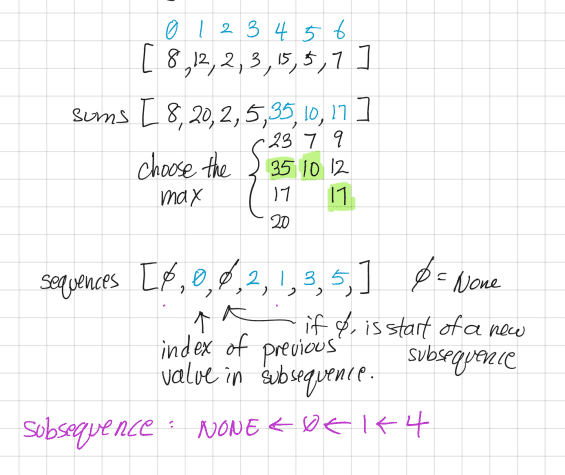 0 1 2 3 4 5 6
[ 8, 12, 2, 3, 15, 5, 7 ]
sums [ 8, 20, 2, 5, 35, 10, 17 ]
23 7 9
choose the { 35 10 12
max 17 17
20
sequences [ϕ, 0, ϕ, 2, 1, 3, 5, ] ϕ = None
if ϕ, is start of a new
subsequence
index of previous
value in subsequence.
subsequence : NONE ← 0 ← 1 ← 4